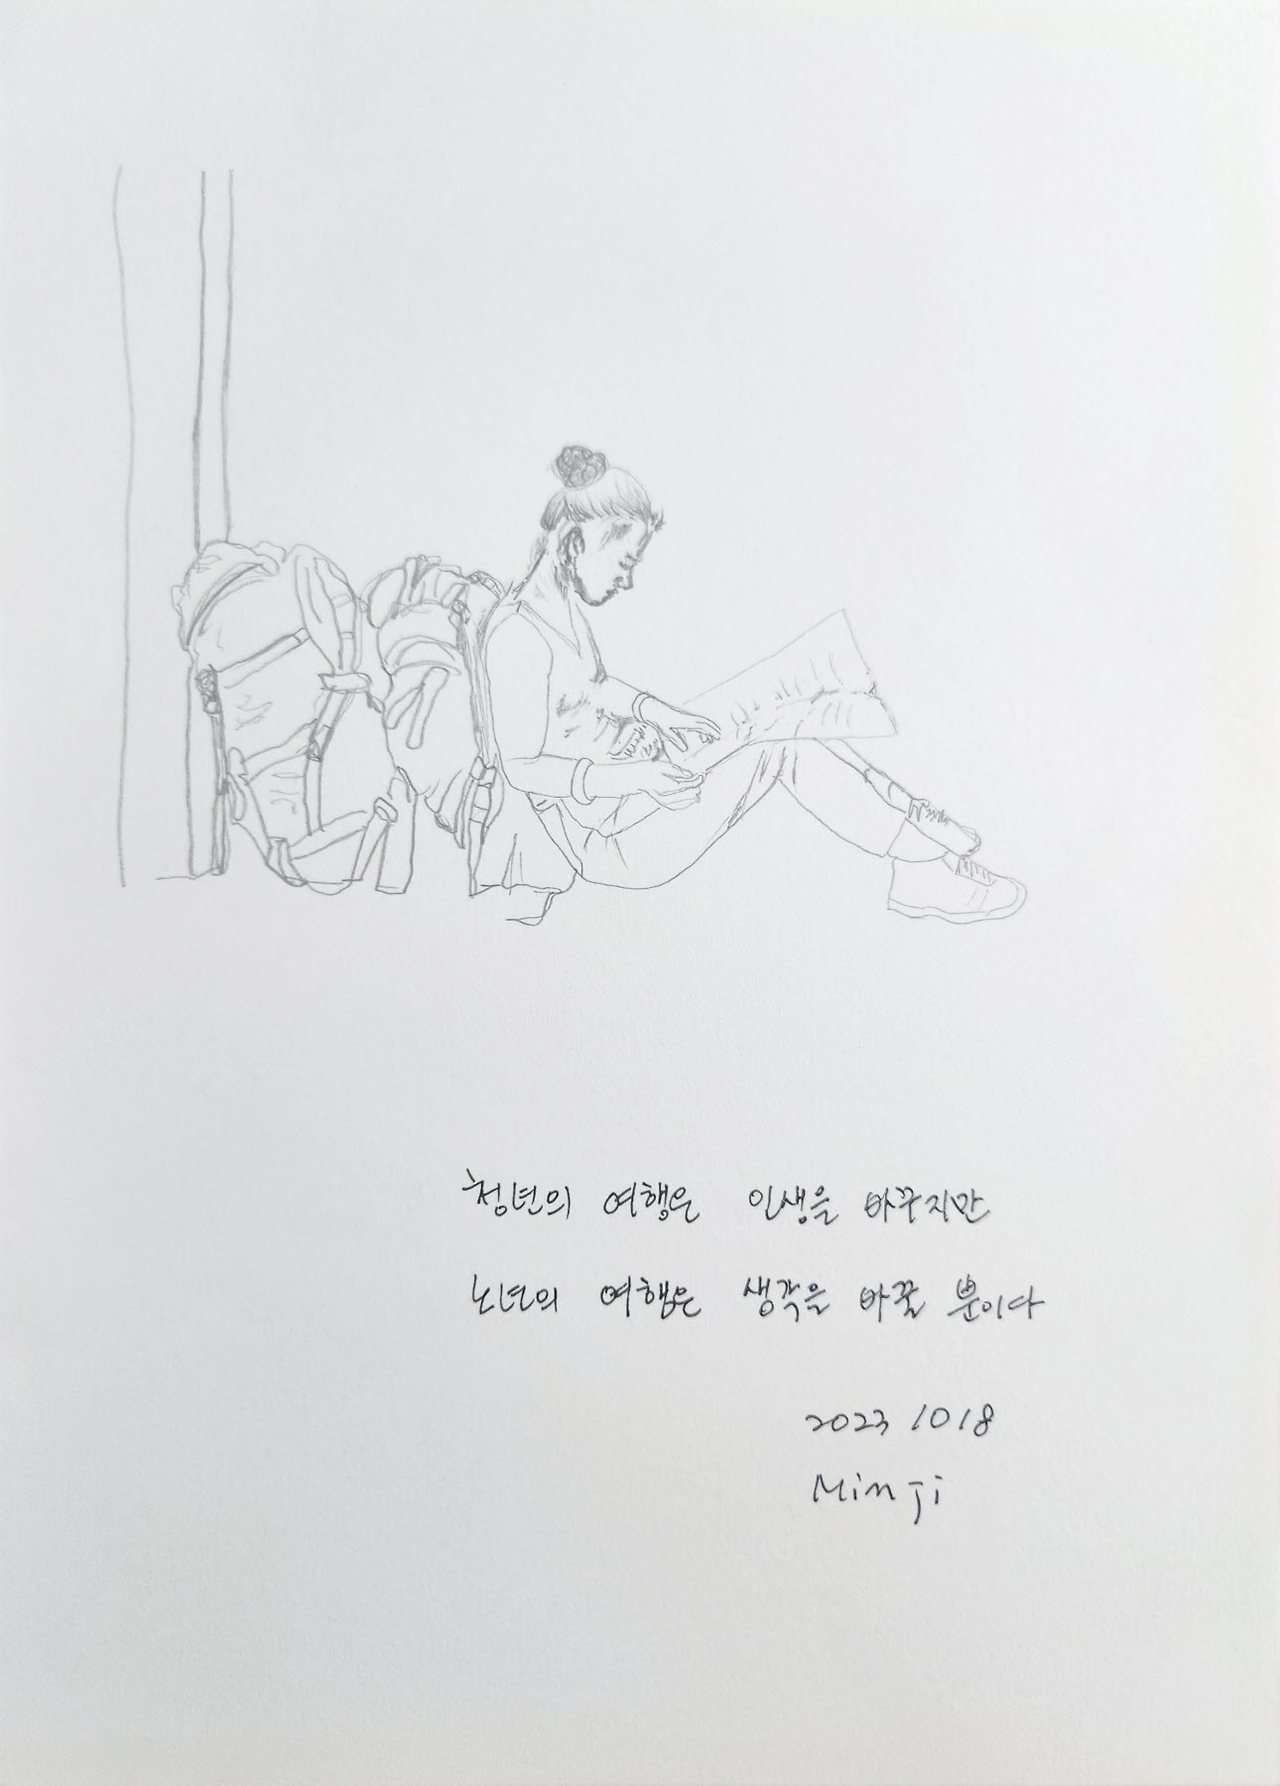 청년의 여행은 인생을 바꾸지만
노년의 여행은 생각을 바꿀 뿐이다
2023 10 18
Minji